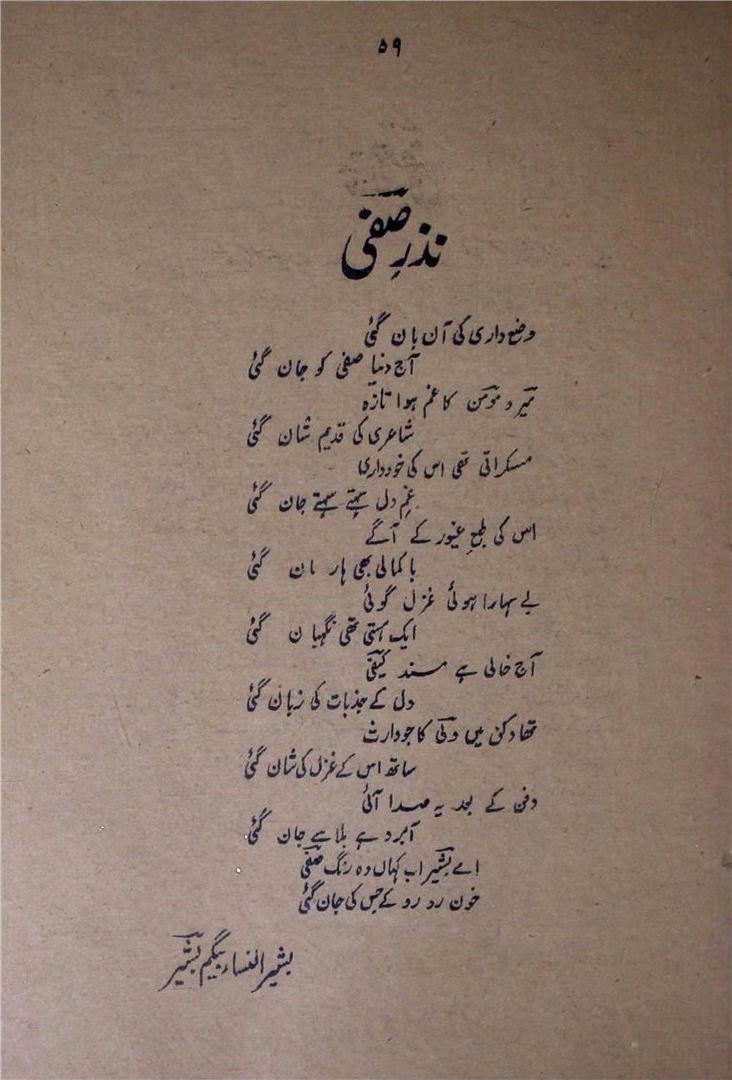 ۵۹
نذرِ صفی
وضع داری کی آن بان گئی
آج دنیا صفی کو جان گئی
میر و مومن کا غم ہوا تازہ
شاعری کی قدیم شان گئی
مسکراتی تھی اس کی خودداری
غمِ دل سہتے سہتے جان گئی
اس کی طبعِ غیور کے آگے
با کمالی بھی ہار مان گئی
بے سہارا ہوئی غزل گوئی
ایک ہستی تھی نگہبان گئی
آج خالی ہے مسند کیفی
دل کے جذبات کی زبان گئی
تھا دکن میں ولی کا جو وارث
ساتھ اس کے غزل کی شان گئی
دفن کے بعد یہ صدا آئی
آبرو ہے بلا سے جان گئی
اے بشیر اب کہاں وہ رنگ صفی
خون رو رو کے جس کی جان گئی
بشیر النساء بیگم بشیر